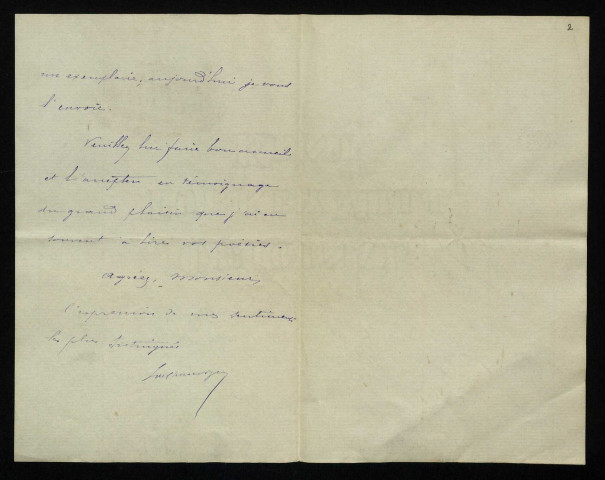 2
un exemplaire, aujourd'hui je vous
l'envoie.
Veuillez lui faire bon accueil
et l'accepter en témoignage
du grand plaisir que j'ai eu
souvent à lire vos poésies.
Agréez, Monsieur,
l'expression de mes sentiments
les plus distingués